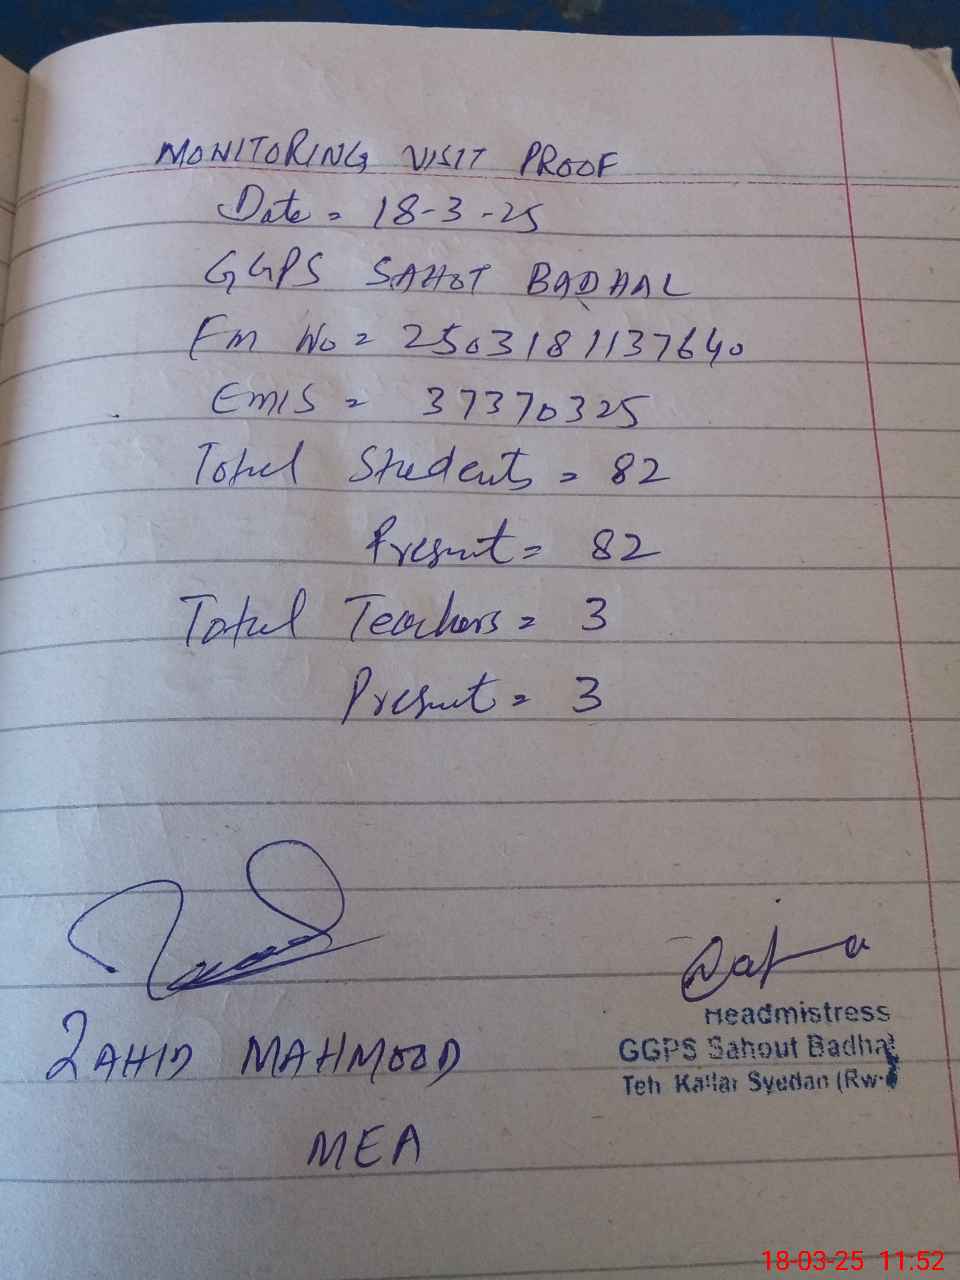 MONITORING VISIT PROOF
Date = 18-3-25
GGPS SAHOT BADHAL
Fm No = 2503181137640
EMIS = 37370325
Total Students = 82
Present = 82
Total Teachers = 3
Present = 3
ZAHID MAHMOOD
MEA
Headmistress
GGPS Sahout Badhal
Teh Kallar Syedan (Rw
18-03-25 11.52